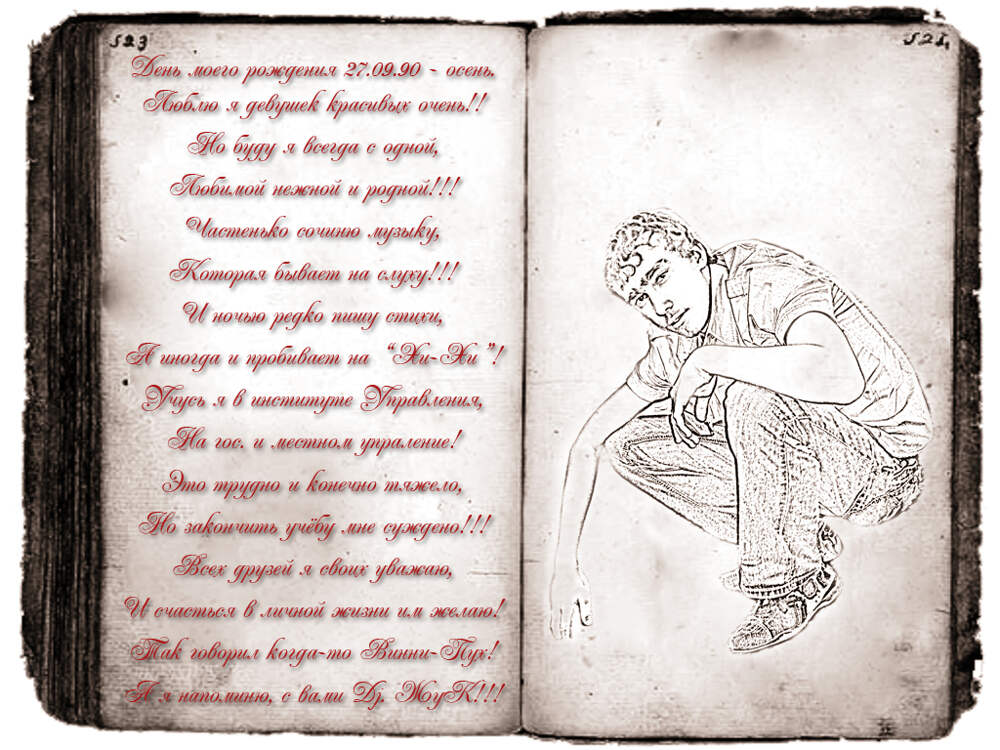 523
521
День моего рождения 27.09.90 - осень.
Люблю я девушек красивых очень!!
Но буду я всегда с одной,
Любимой нежной и родной!!!
Частенько сочиню музыку,
Которая бывает на слуху!!!
И ночью редко пишу стихи,
А иногда и пробивает на “Хи-Хи”!
Учусь я в институте Управления,
На гос. и местном упраление!
Это трудно и конечно тяжело,
Но закончить учёбу мне суждено!!!
Всех друзей я своих уважаю,
И счасться в личной жизни им желаю!
Так говорил когда-то Винни-Пух!
А я напомню, с вами Dj. ЖуК!!!